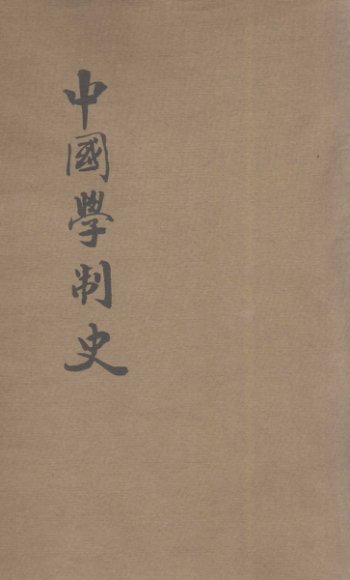 中國學制史